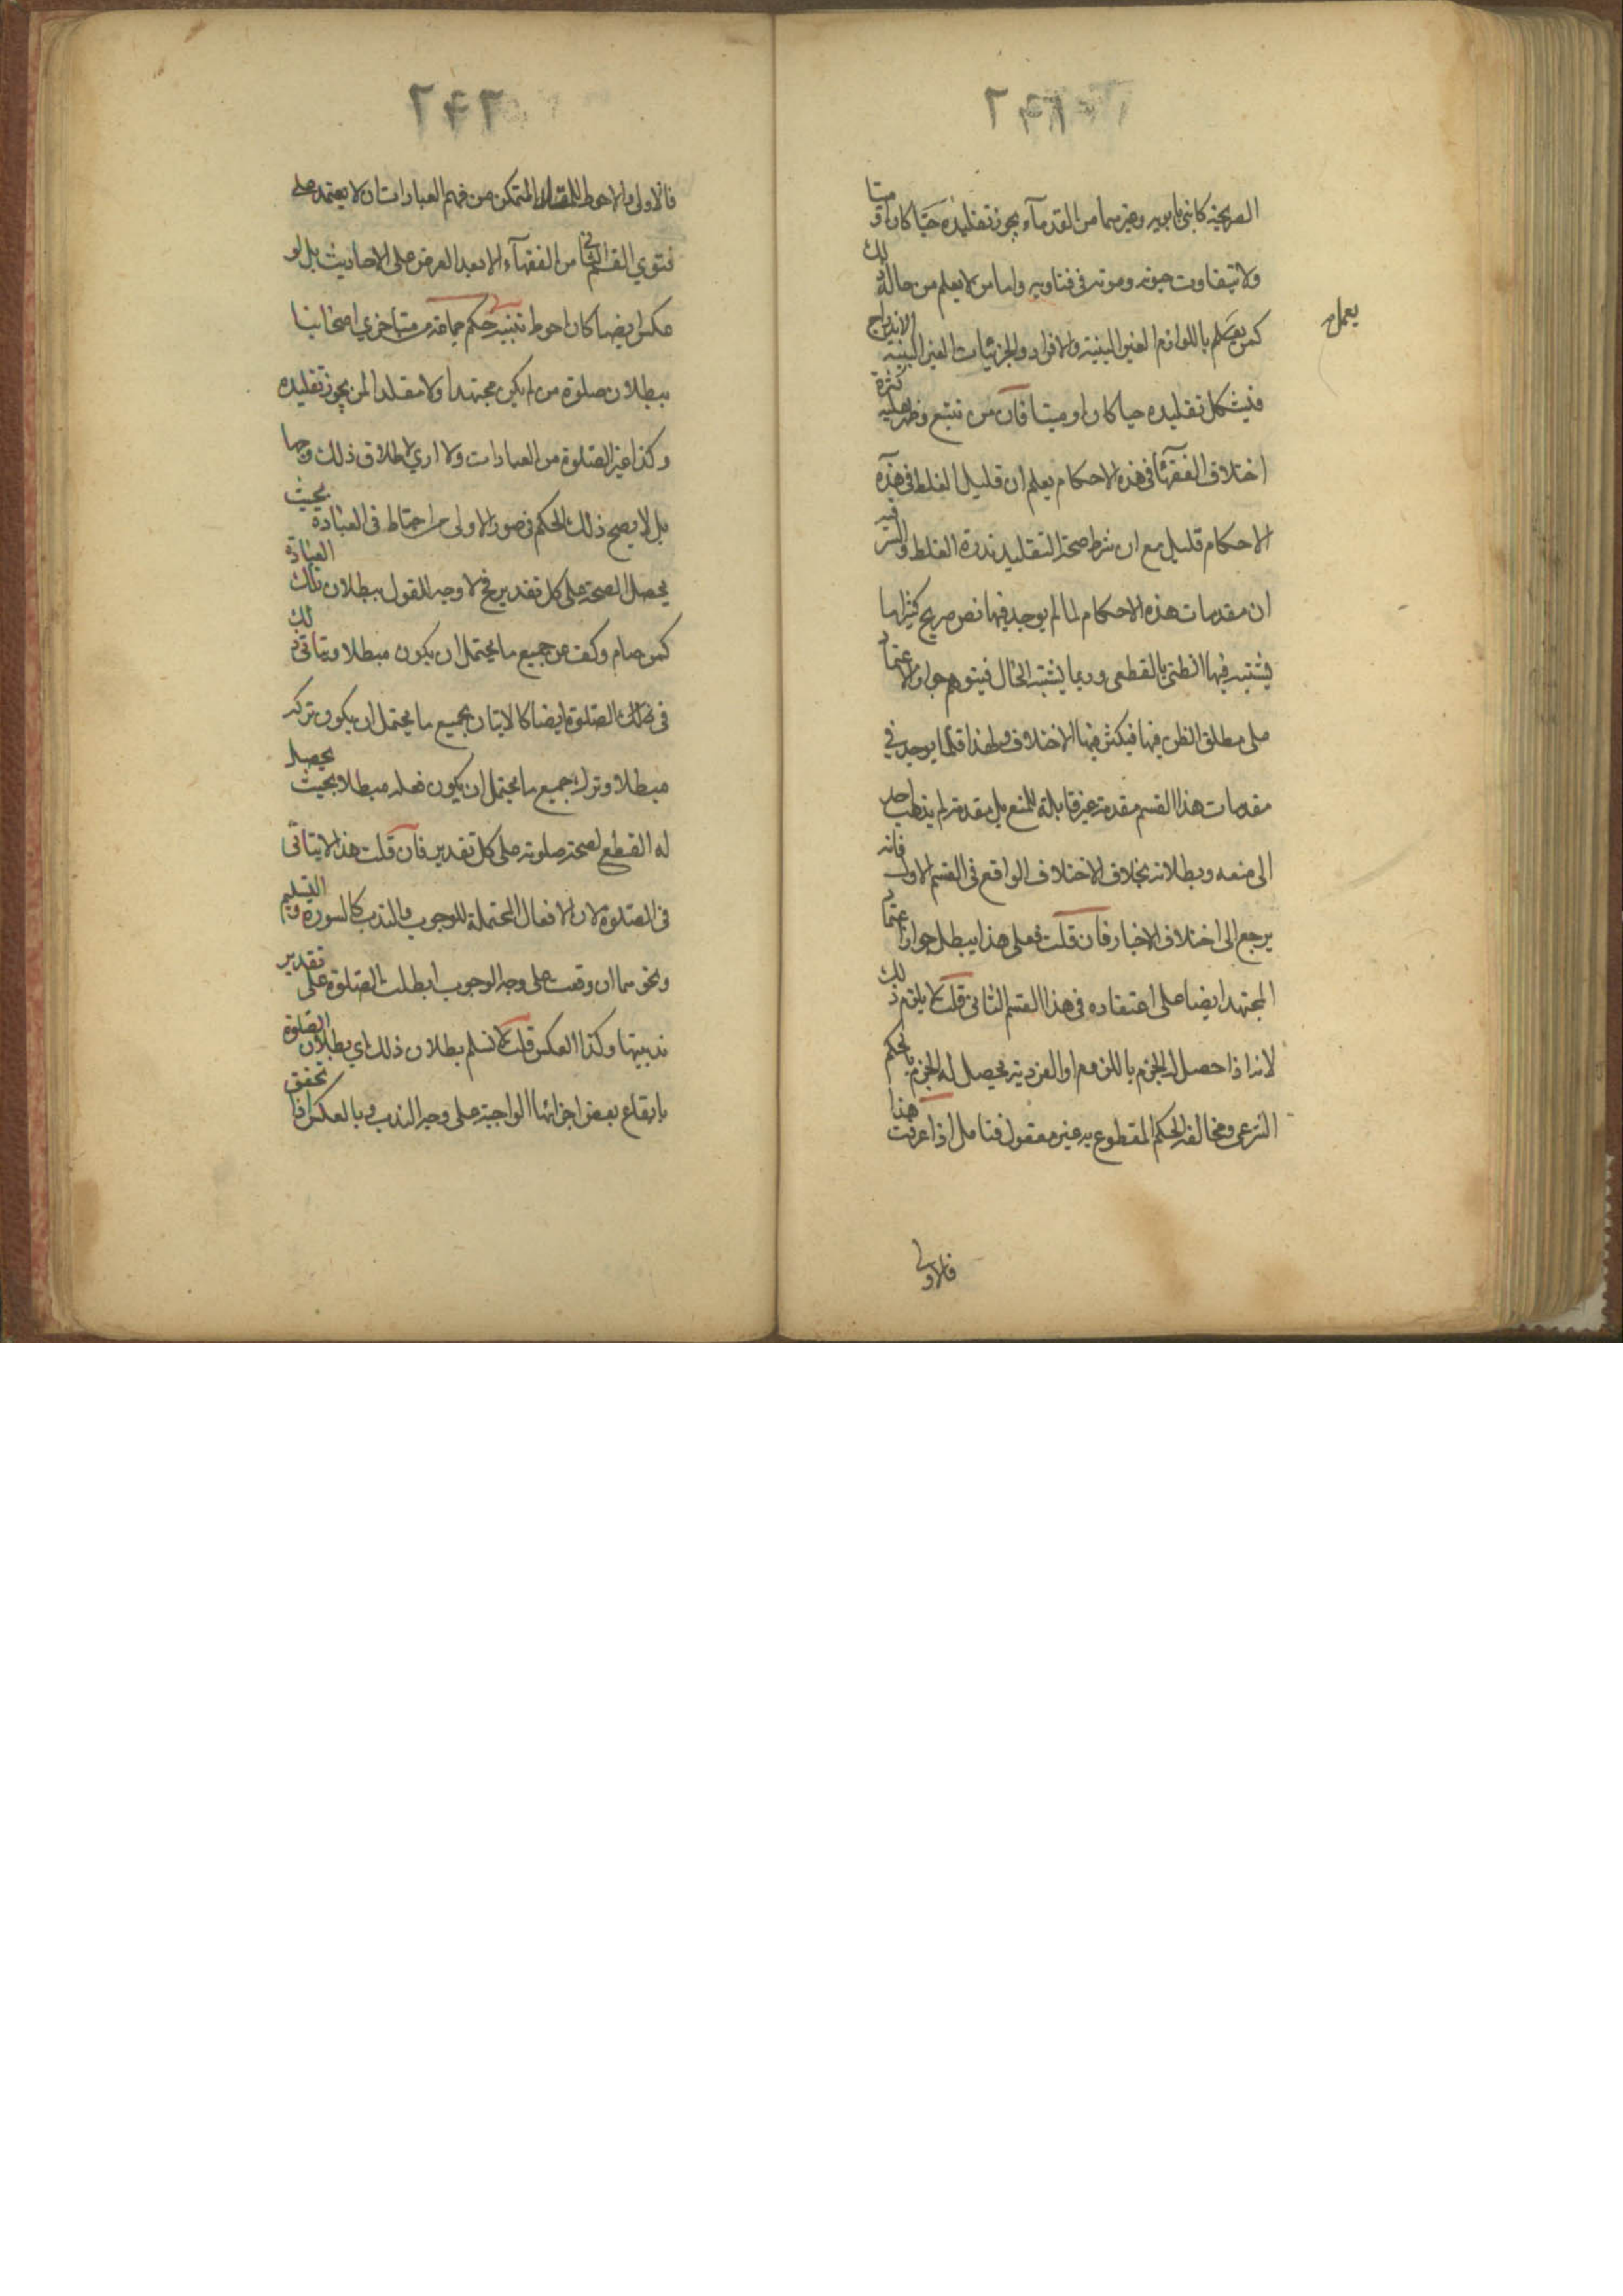 ٢٤١
الصريحة كابني بابويه وغيرهما من القدمآء يجوز تقليده حيّا كان او ميتا
ولا يتفاوت حيوته وموته في فتاويه واما من لا يعلم من حاله ذلك
كمن يعمل باللوازم الغير البينة والافراد والجزئيات الغير البينة الاندراج
يعمل
فيشكل تقليده حيا كان او ميتا فان من تتبع وظهر عليه كثرة
اختلاف الفقهآء في هذه الاحكام يعلم ان قليل الغلط في هذه
الاحكام قليل مع ان شرط صحة التقليد ندرة الغلط والسر فيه
ان مقدمات هذه الاحكام لما لم يوجد فيها نص صريح كثيرا ما
يشتبه فيها الظني بالقطعي وربما يشتبه الحال فيتوهم جواز الاعتماد
على مطلق الظن فيها فيكثر فيها الاختلاف ولهذا قلما يوجد في
مقدمات هذا القسم مقدمة غير قابلة للمنع بل مقدمة لم يذهب احد
الى منعه وبطلانه بخلاف الاختلاف الواقع في القسم الاول فانه
يرجع الى اختلاف الاخبار فان قلت فعلى هذا يبطل جواز اعتماد
المجتهد ايضا على اعتقاده في هذا القسم الثاني قلت لا يلزم ذلك
لانه اذا حصل له الجزم باللزوم او الفردية يحصل له الجزم بالحكم
الشرعي ومخالفة الحكم المقطوع به غير معقول فتامل اذا عرفت هذا
فالاولى
٢٤٢
فالاولى والاحوط للمقلد المتمكن من فهم العبادات ان لا يعتمد على
فتوي القسم الثاني من الفقهآء الا بعد العرض على الاحاديث بل لو
عكس ايضا كان احوط تنبيه حكم جماعة من متاخري اصحابنا
ببطلان صلوة من لم يكن مجتهدا ولا مقلدا لمن يجوز تقليده
وكذا غير الصلوة من العبادات ولا اري لاطلاق ذلك وجها
بل لا يصح ذلك الحكم في صور الاولى من احتاط في العبادة بحيث
يحصل الصحة على كل تقدير فح لا وجه للقول ببطلان تلك العبادة
كمن صام وكف عن جميع ما يحتمل ان يكون مبطلا ويتاتى ذلك
في الصلوة ايضا كالاتيان بجميع ما يحتمل ان يكون تركه
مبطلا وترك جميع ما يحتمل ان يكون فعله مبطلا بحيث يحصل
له القطع لصحة صلوته على كل تقدير فان قلت هذا لا يتاتى
في الصلوة لان الافعال المحتملة للوجوب والندب كالسورة والتسليم
ونحوهما ان وقعت على وجه الوجوب ابطلت الصلوة على تقدير
ندبيتها وكذا العكس قلت لا نسلم بطلان ذلك اي بطلان الصلوة
بايقاع بعض اجزائها الواجبة على وجه الندب وبالعكس اذا تحقق